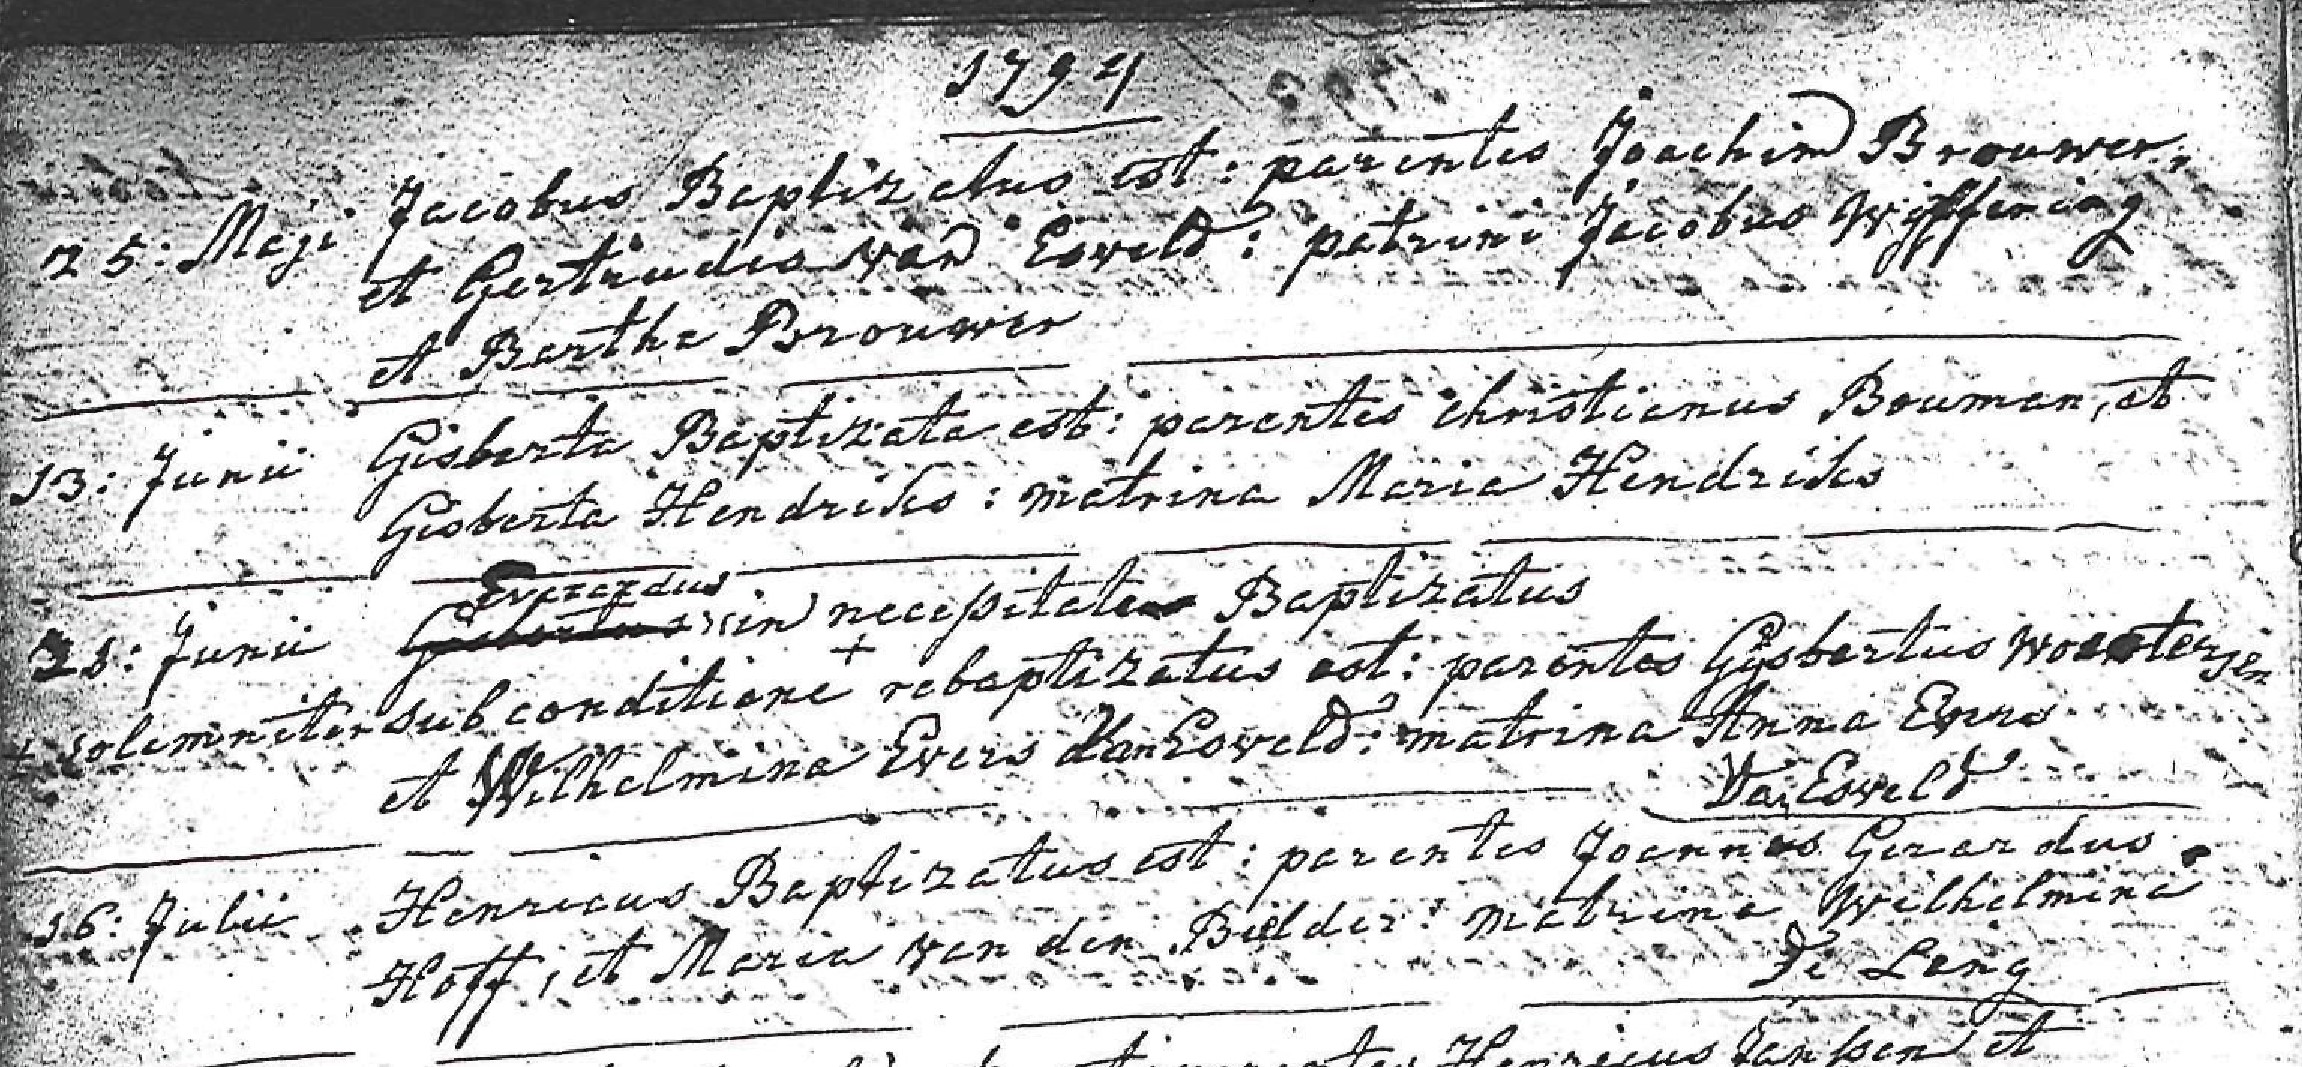 1794
25: Maji Jacobus Baptizatus est: parentes Joachim Brouwer,
et Gertrudis van Esveld: patrini Jacobus Wijffering
et Bartha Brouwer
13: Junii Gisberta Baptizata est: parentes Christianus Bouman, et
Gisberta Hendriks: matrina Maria Hendriks
Everardus
21: Junii Gisbertus in necessitate Baptizatus
+ solemniter sub conditione + rebaptizatus est: parentes Gijsbertus
et Wilhelmina Evers van Esveld: matrina Anna Evers
Van Esveld
16: Julii Henricus Baptizatus est: parentes Joannes Gerardus
Hoff, et Maria van den Bielder: matrina Wilhelmina
De Lang
parentes Henricus Janssen et